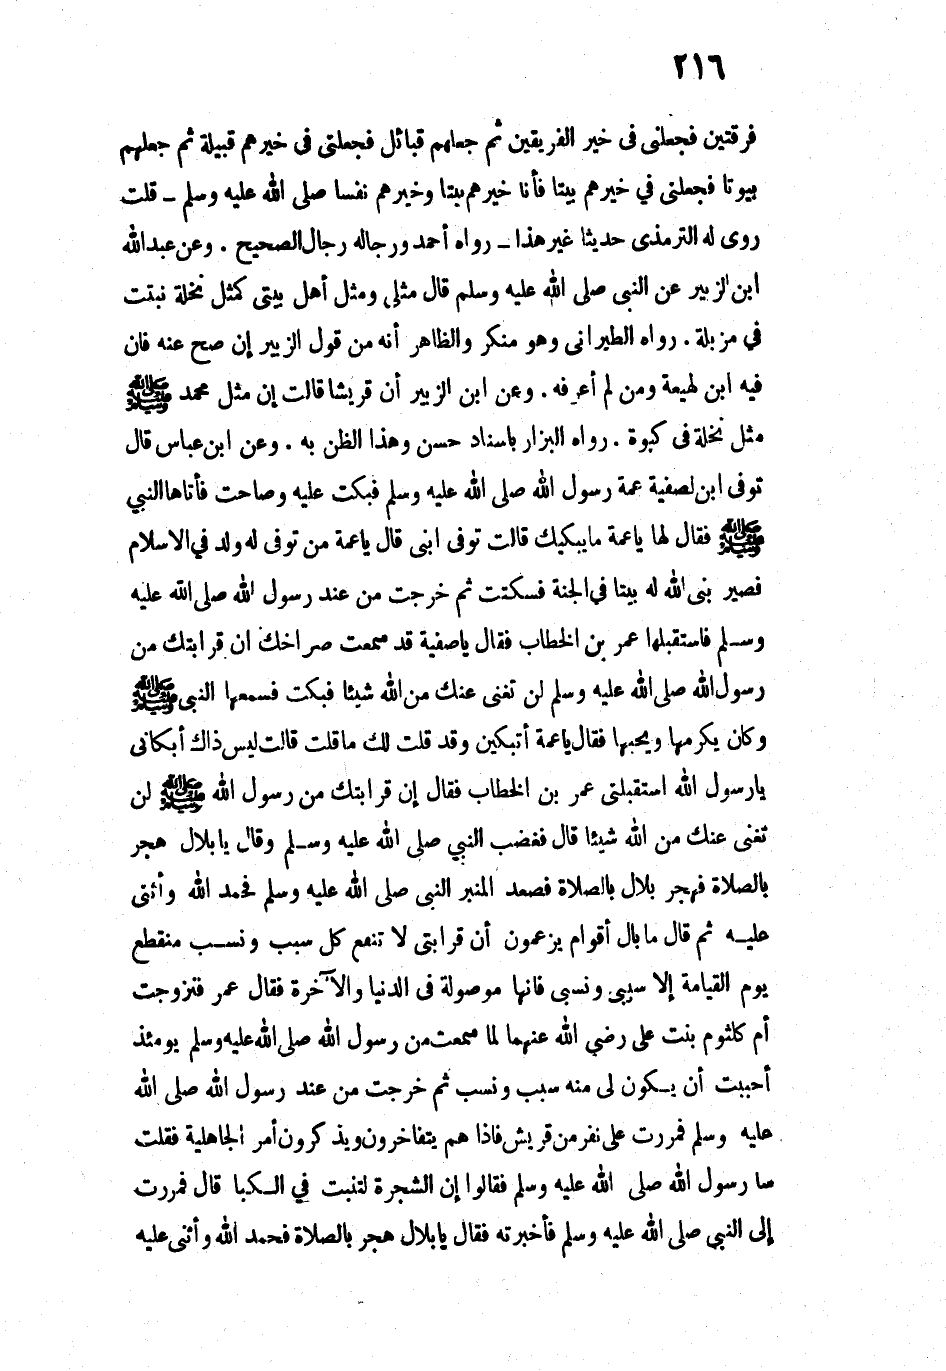 ٢١٦
فرقتين فجعلنى فى خير الفريقين ثم جعلهم قبائل فجعلنى فى خيرهم قبيلة ثم جعلهم
بيوتا فجعلنى في خيرهم بيتا فأنا خيرهم بيتا وخيرهم نفسا صلى الله عليه وسلم ـ قلت
روى له الترمذى حديثا غير هذا ـ رواه أحمد ورجاله رجال الصحيح . وعن عبد الله
ابن الزبير عن النبى صلى الله عليه وسلم قال مثلى ومثل أهل بيتى كمثل نخلة نبتت
في مزبلة . رواه الطبرانى وهو منكر والظاهر أنه من قول الزبير إن صح عنه فان
فيه ابن لهيعة ومن لم أعرفه . وعن ابن الزبير أن قريشا قالت إن مثل محمد ﷺ
مثل نخلة فى كبوة . رواه البزار باسناد حسن وهذا الظن به . وعن ابن عباس قال
توفى ابن لصفية عمة رسول الله صلى الله عليه وسلم فبكت عليه وصاحت فأتاها النبي
ﷺ فقال لها ياعمة مايبكيك قالت توفى ابنى قال ياعمة من توفى له ولد في الاسلام
فصبر بنى الله له بيتا في الجنة فسكتت ثم خرجت من عند رسول الله صلى الله عليه
وسـلم فاستقبلها عمر بن الخطاب فقال ياصفية قد سمعت صراخك ان قرابتك من
رسول الله صلى الله عليه وسلم لن تغنى عنك من الله شيئا فبكت فسمعها النبى ﷺ
وكان يكرمها ويحبها فقال ياعمة أتبكين وقد قلت لك ماقلت قالت ليس ذاك أبكانى
يارسول الله استقبلنى عمر بن الخطاب فقال إن قرابتك من رسول الله ﷺ لن
تغنى عنك من الله شيئا قال فغضب النبي صلى الله عليه وسـلم وقال يابلال هجر
بالصلاة فهجر بلال بالصلاة فصعد المنبر النبى صلى الله عليه وسلم فحمد الله وأثنى
عليـه ثم قال مابال أقوام يزعمون أن قرابتى لا تنفع كل سبب ونسـب منقطع
يوم القيامة إلا سببى ونسبى فانها موصولة فى الدنيا والآخرة فقال عمر فتزوجت
أم كلثوم بنت على رضي الله عنهما لما سمعت من رسول الله صلى الله عليه وسلم يومئذ
أحببت أن يـكون لى منه سبب ونسب ثم خرجت من عند رسول الله صلى الله
عليه وسلم فمررت على نفر من قريش فاذا هم يتفاخرون ويذكرون أمر الجاهلية فقلت
منا رسول الله صلى الله عليه وسلم فقالوا إن الشجرة لتنبت في الـكبا قال فمررت
إلى النبي صلى الله عليه وسلم فأخبرته فقال يابلال هجر بالصلاة فحمد الله وأثنى عليه